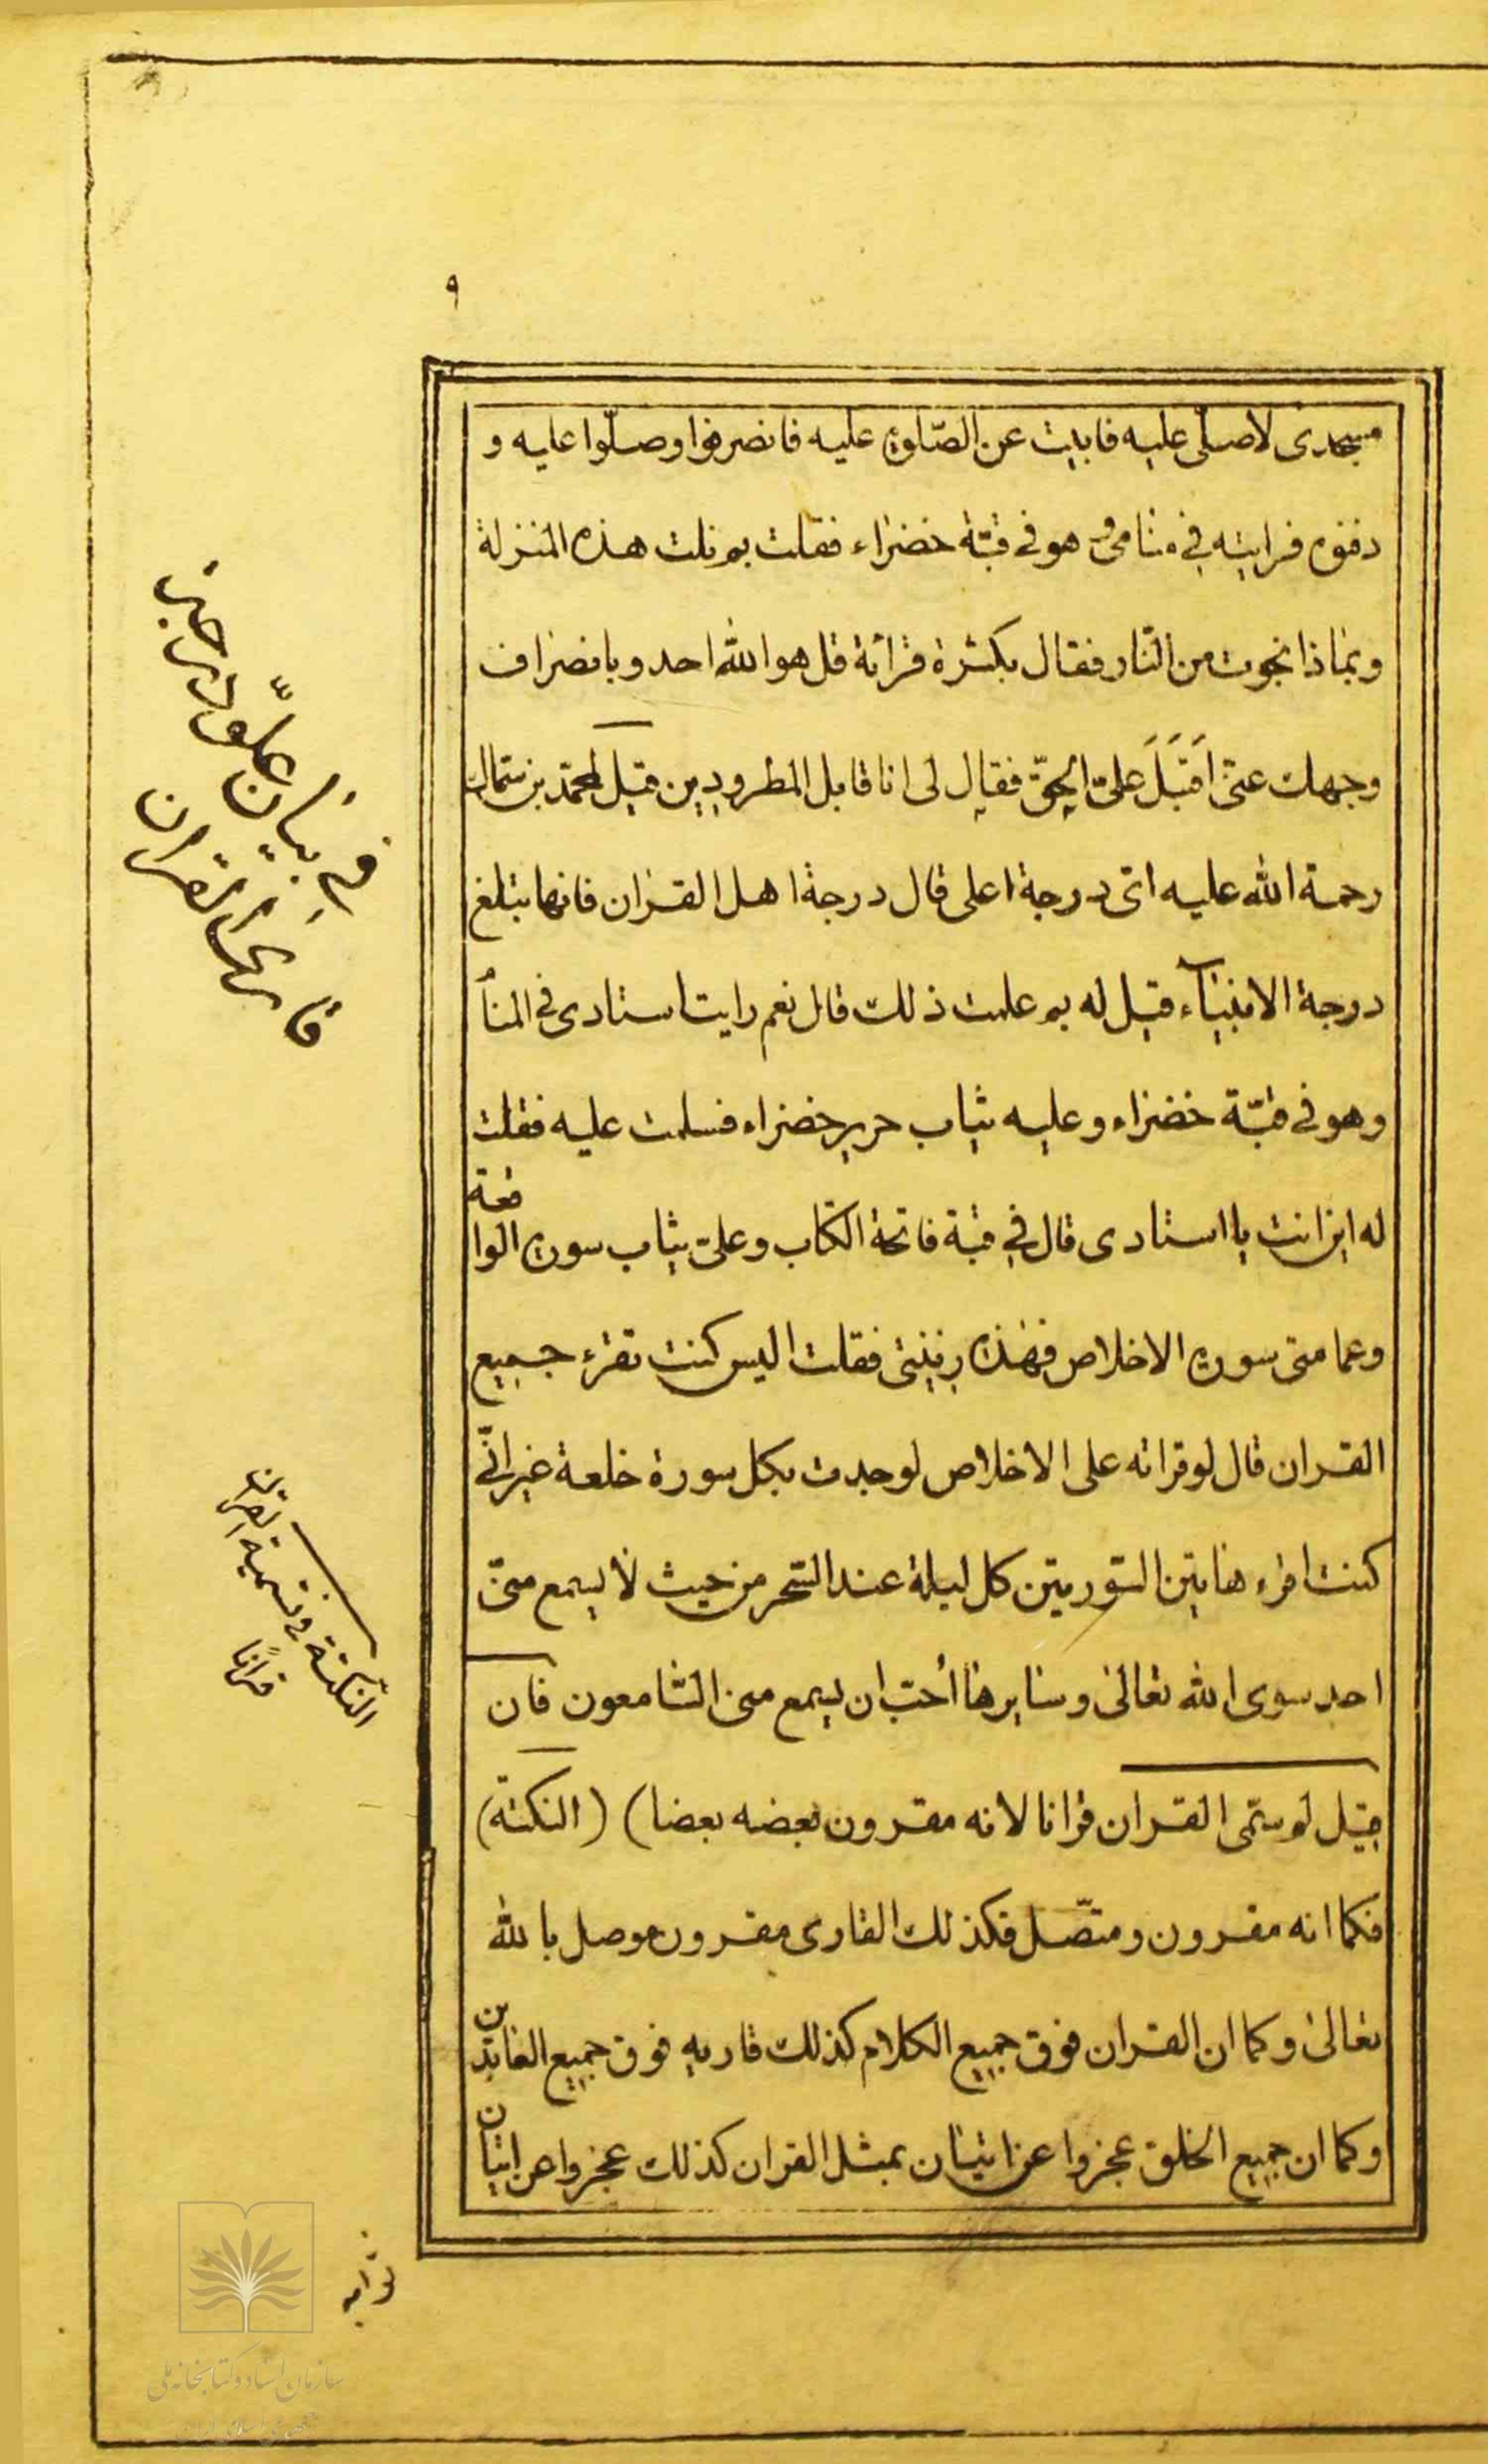 ٩
مسجدى لاصلّى عليه فابيت عن الصّلوة عليه فانصرفوا وصلّوا عليه و
دفنوه فرايته فى منامى و هو فى قبّة خضراء فقلت بم نلت هذه المنزلة
وبماذا نجوت من النّار فقال بكثرة قرائة قل هو الله احد وبانصراف
وجهك عنّى اَقبَلَ عَلىّ الحقّ فقال لى انا قابل المطرودين قيل لمحمّد بن سمّاك
رحمة الله عليه اىّ درجة اعلى قال درجة اهل القران فانها تبلغ
درجة الانبيآء قيل له بم علمت ذلك قال نعم رايت استادى فى المنا
وهو فى قبّة خضراء وعليه ثياب حرير خضراء فسلمت عليه فقلت
له اين انت يا استادى قال فى قبة فاتحة الكتاب وعلىّ ثياب سورة الواقعة
وعمامتى سورة الاخلاص فهذه زينتى فقلت اليس كنت تقرء جميع
القران قال لو قراته على الاخلاص لوجدت بكل سورة خلعة غير انّى
كنت اقرء هاتين السّورتين كل ليلة عند السّحر من حيث لا يسمع منّى
احد سوى الله تعالى وسايرها أحبّ ان يسمع منى السّامعون فان
قيل لم سمّى القران قرانا لانه مقرون بعضه بعضا) (النكتة)
فكما انه مقرون ومتّصل فكذلك القارى مقرون موصل بالله
تعالى وكما ان القران فوق جميع الكلام كذلك قاريه فوق جميع العابدين
وكما ان جميع الخلق عجزوا عن اتيان بمثل القران كذلك عجزوا عن اتيان
فى بيان علوّ درجة
قارى القران
النّكتة فى تسمية القران
قرانًا
ثوابه
سازمان اسناد و کتابخانه ملی
جمهوری اسلامی ایران